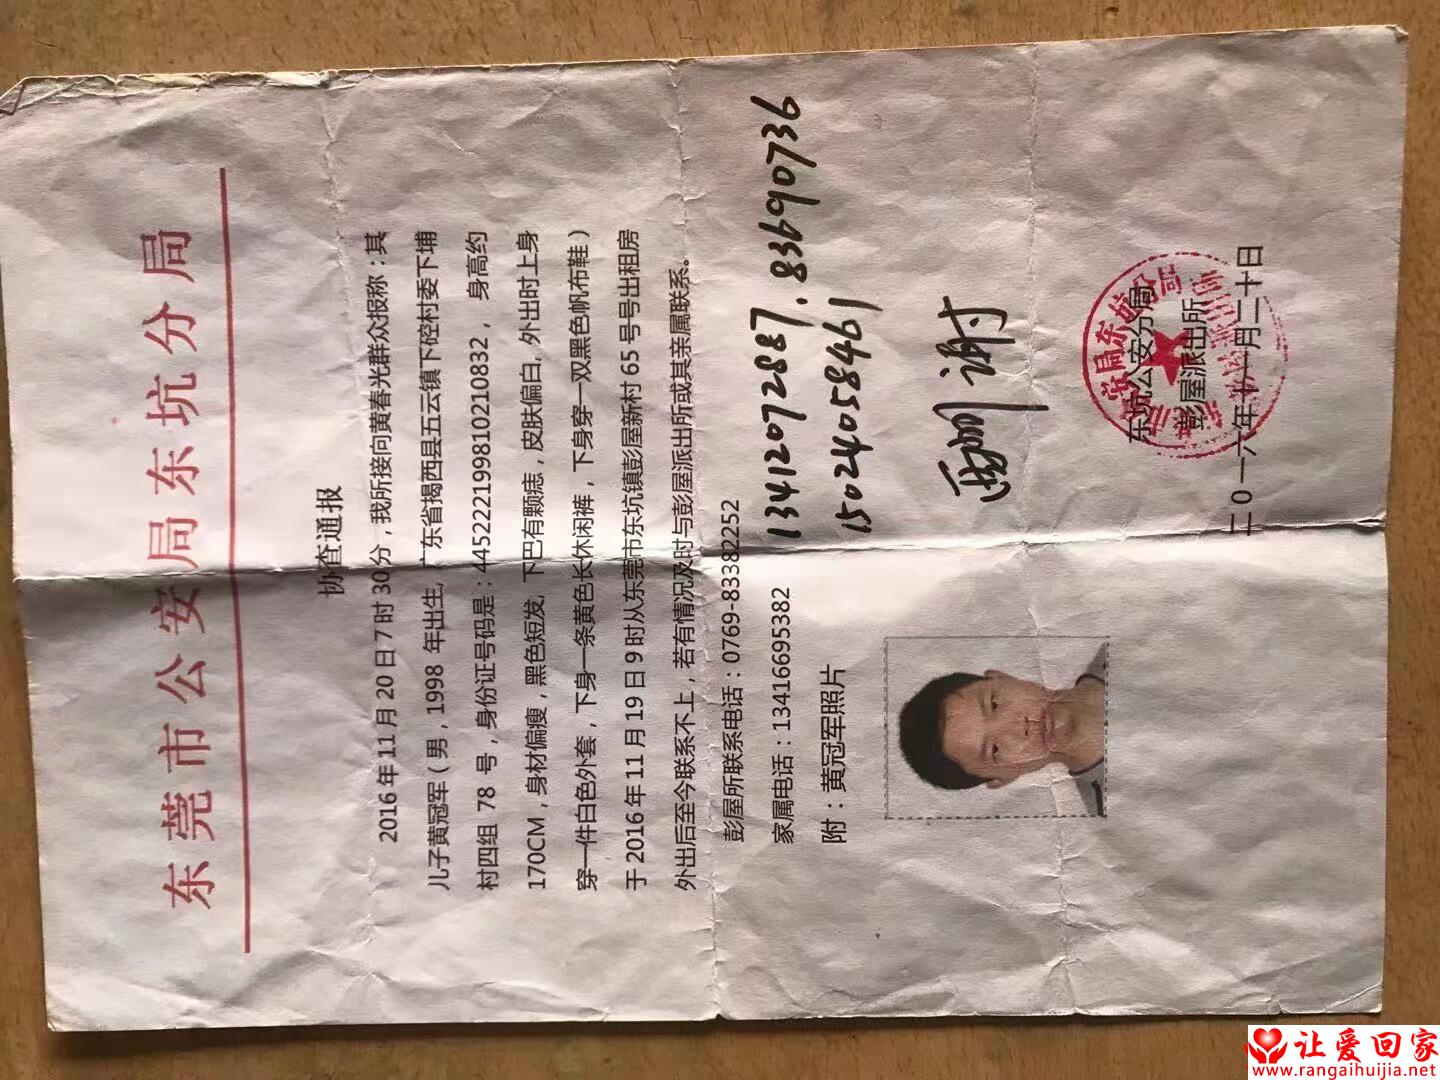 东莞市公安局东坑分局
协查通报
2016年11月20日7时30分，我所接向黄春光群众报称：其
儿子黄冠军（男，1998 年出生，广东省揭西县五云镇下硿村委下埔
村四组 78 号，身份证号码是：445222199810210832，身高约
170CM，身材偏瘦，黑色短发，下巴有颗痣，皮肤偏白，外出时上身
穿一件白色外套，下身一条黄色长休闲裤，下身穿一双黑色帆布鞋）
于2016年11月19日9时从东莞市东坑镇彭屋新村65号号出租房
外出后至今联系不上，若有情况及时与彭屋派出所或其亲属联系。
彭屋所联系电话：0769-83382252
家属电话：13416695382
13412072887. 83690736
15024058461
附：黄冠军照片
谢
东坑公安分局
彭屋派出所
二0一六年十一月二十日
让爱回家
www.rangaihuijia.net